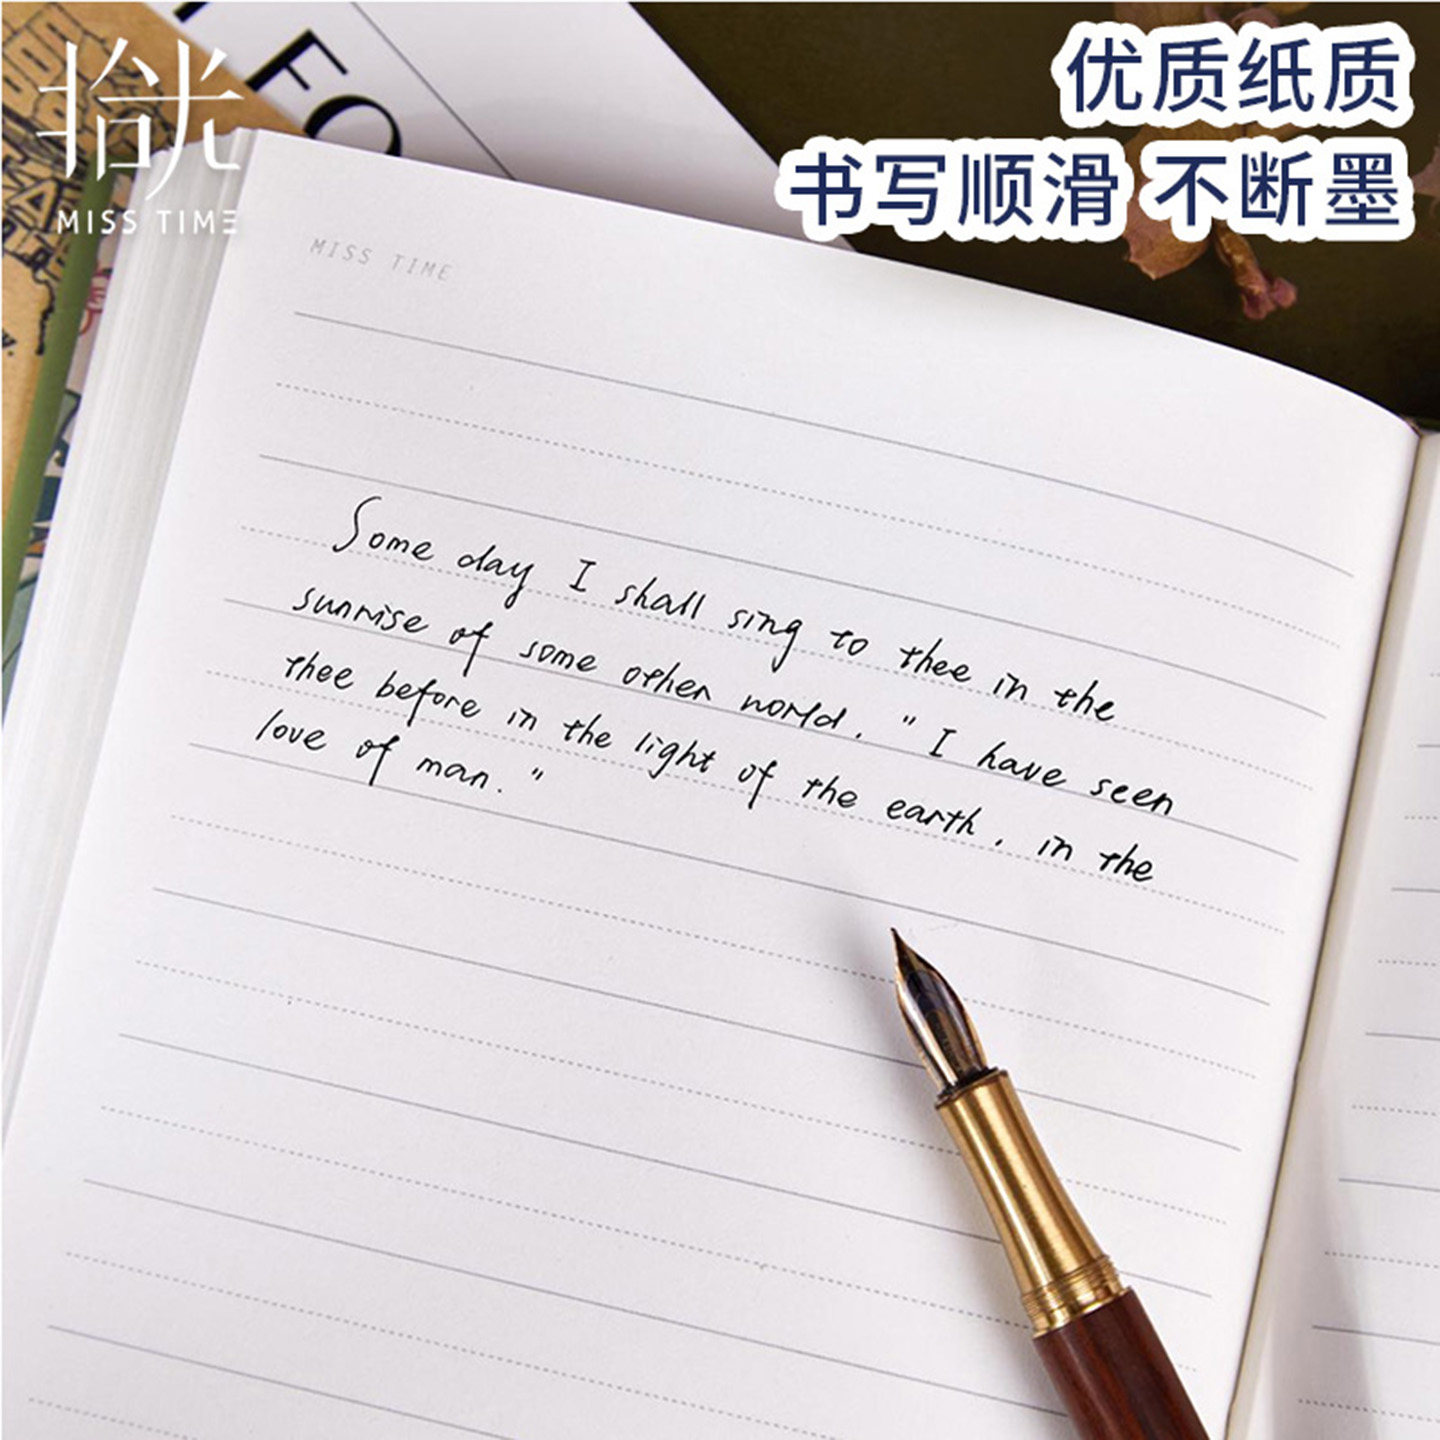 拾光
MISS TIME
FO
优质纸质
书写顺滑 不断墨
MISS TIME
Some day I shall sing to thee in the
sunrise of some other world. " I have seen
thee before in the light of the earth, in the
love of man. "